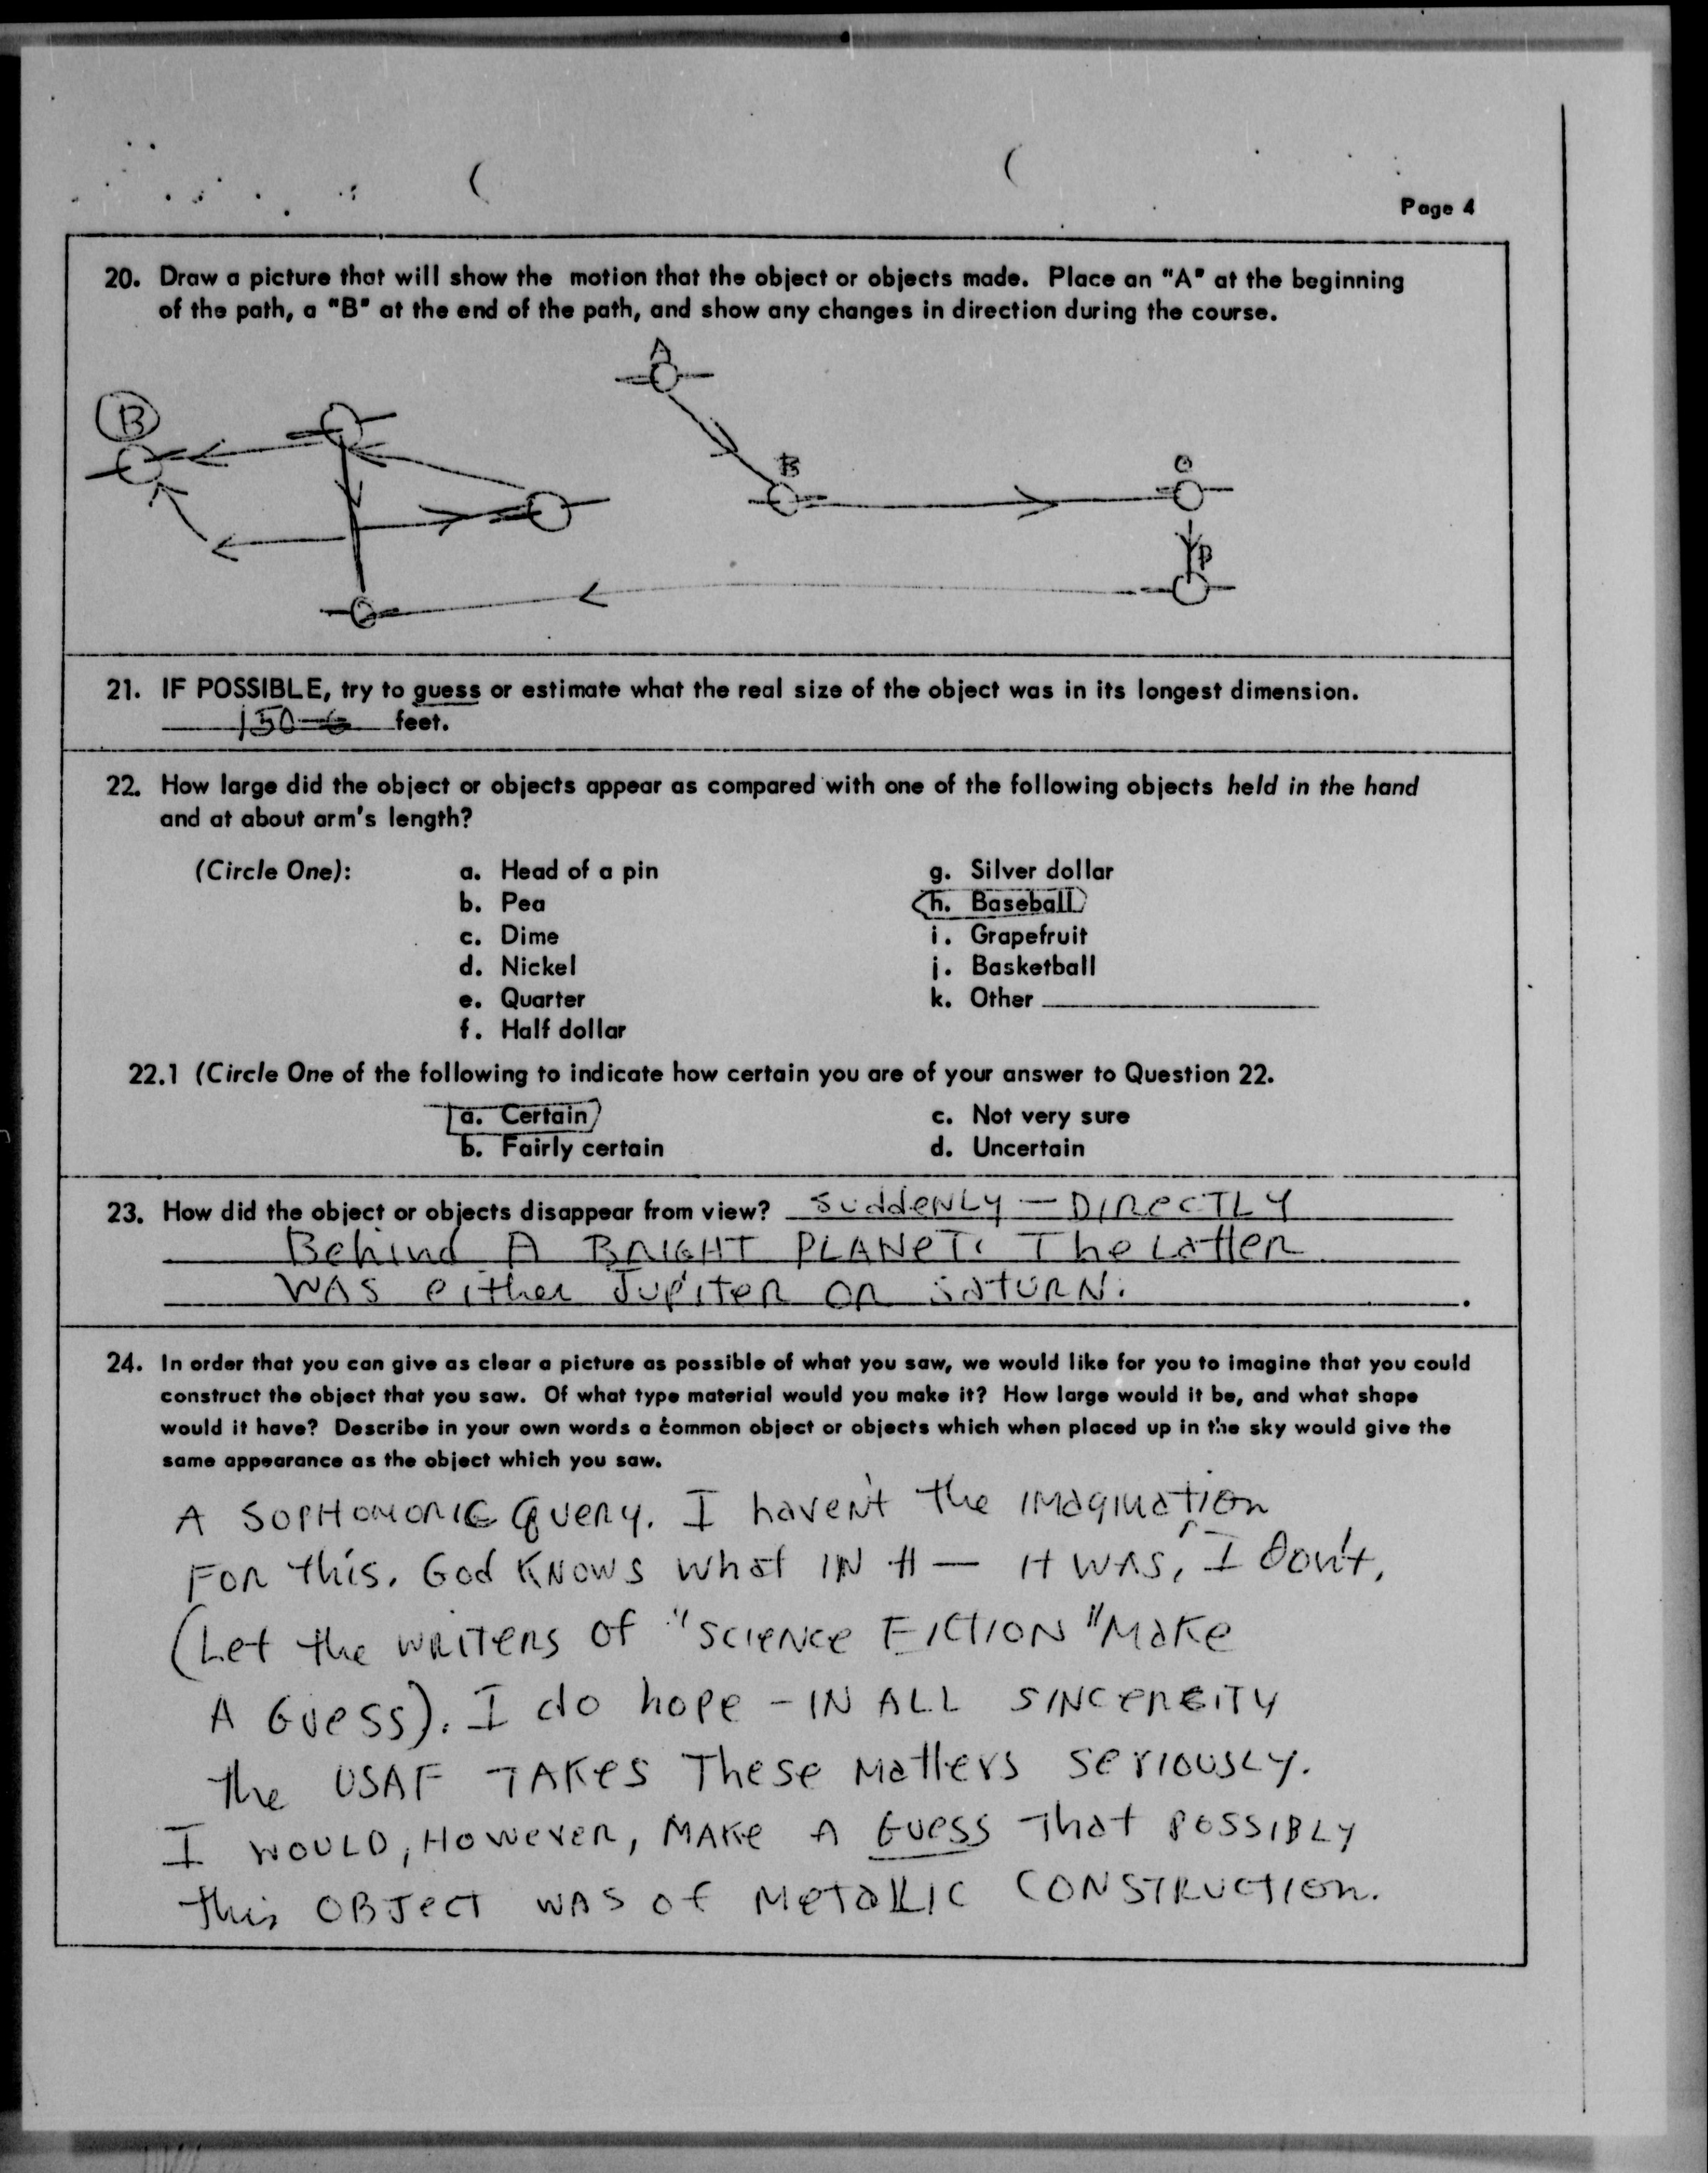 Page 4
20. Draw a picture that will show the motion that the object or objects made. Place an "A" at the beginning
of the path, a "B" at the end of the path, and show any changes in direction during the course.
A
B
B
21. IF POSSIBLE, try to guess or estimate what the real size of the object was in its longest dimension.
150 feet.
22. How large did the object or objects appear as compared with one of the following objects held in the hand
and at about arm's length?
(Circle One): a. Head of a pin g. Silver dollar
b. Pea h. Baseball
c. Dime i. Grapefruit
d. Nickel j. Basketball
e. Quarter k. Other
f. Half dollar
22.1 (Circle One of the following to indicate how certain you are of your answer to Question 22.
a. Certain c. Not very sure
b. Fairly certain d. Uncertain
23. How did the object or objects disappear from view? SuddeNLy — DIRecTLY
Behind A BRIGHT PLANeT. The Latter
WAS either JupiteR OR SaTURN.
24. In order that you can give as clear a picture as possible of what you saw, we would like for you to imagine that you could
construct the object that you saw. Of what type material would you make it? How large would it be, and what shape
would it have? Describe in your own words a common object or objects which when placed up in the sky would give the
same appearance as the object which you saw.
A SOPHOMORIC Query. I haven't the IMagination
FOR this. God KNOWS what IN H— It WAS, I Don't.
(Let the WRITERS of "Science FICTION" Make
A Guess). I do hope - IN ALL SINCEREITY
the USAF TAKes These Matters SerIOUSLY.
I WOULD, HOWeveR, MAKe A Guess That POSSIBLY
this OBJecT WAS of MeTaLLIC CONSTRUCTION.